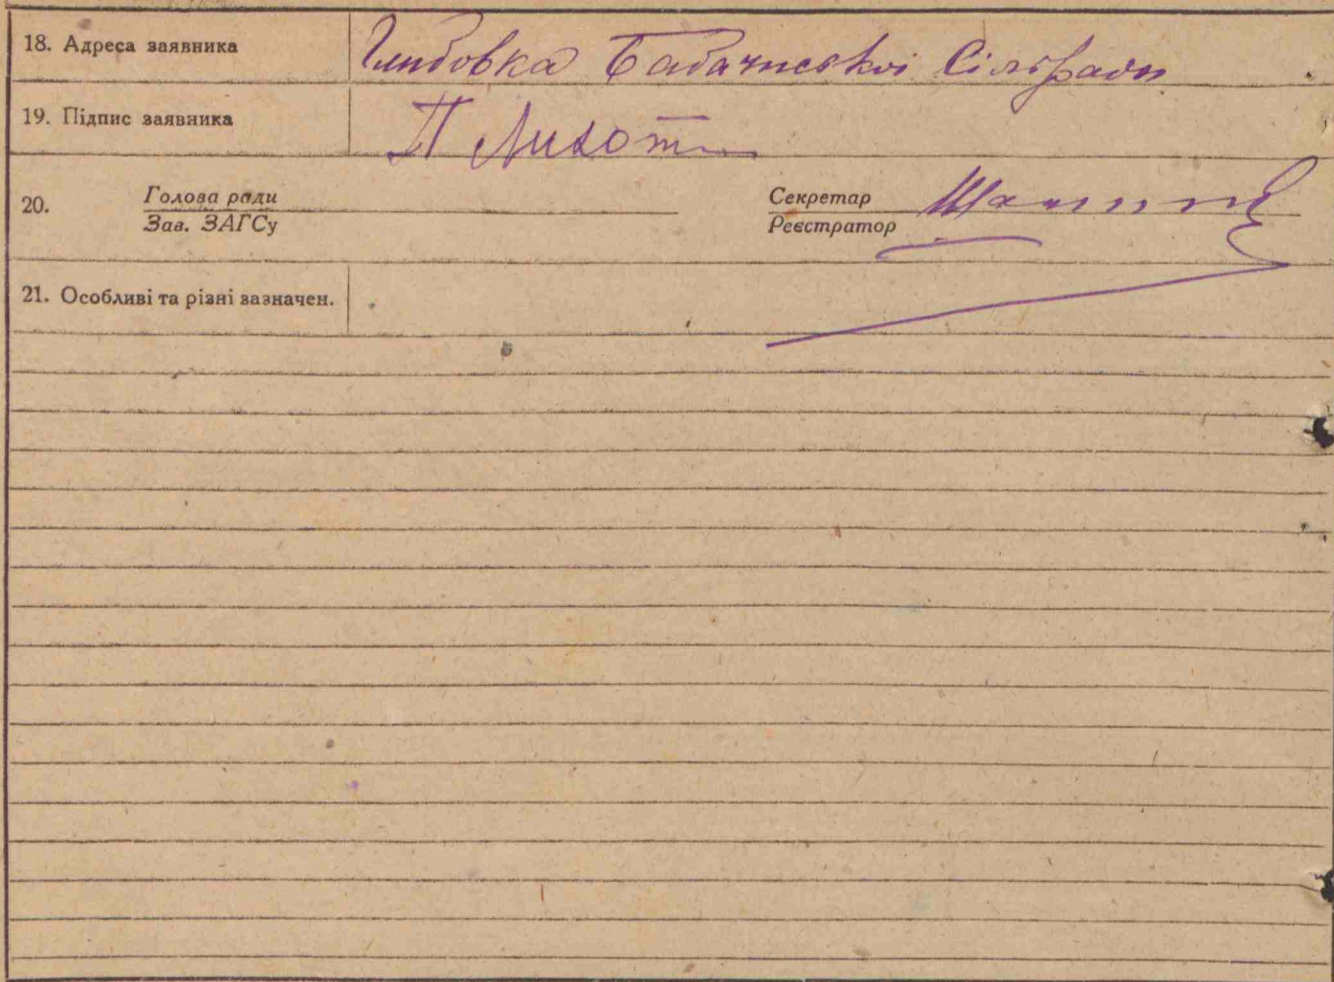 18. Адреса заявника Глибовка Бабачиської Сільради
19. Підпис заявника П Лихот
20. Голова ради Секретар
Зав. ЗАГСу Реєстратор
21. Особливі та різні зазначен.